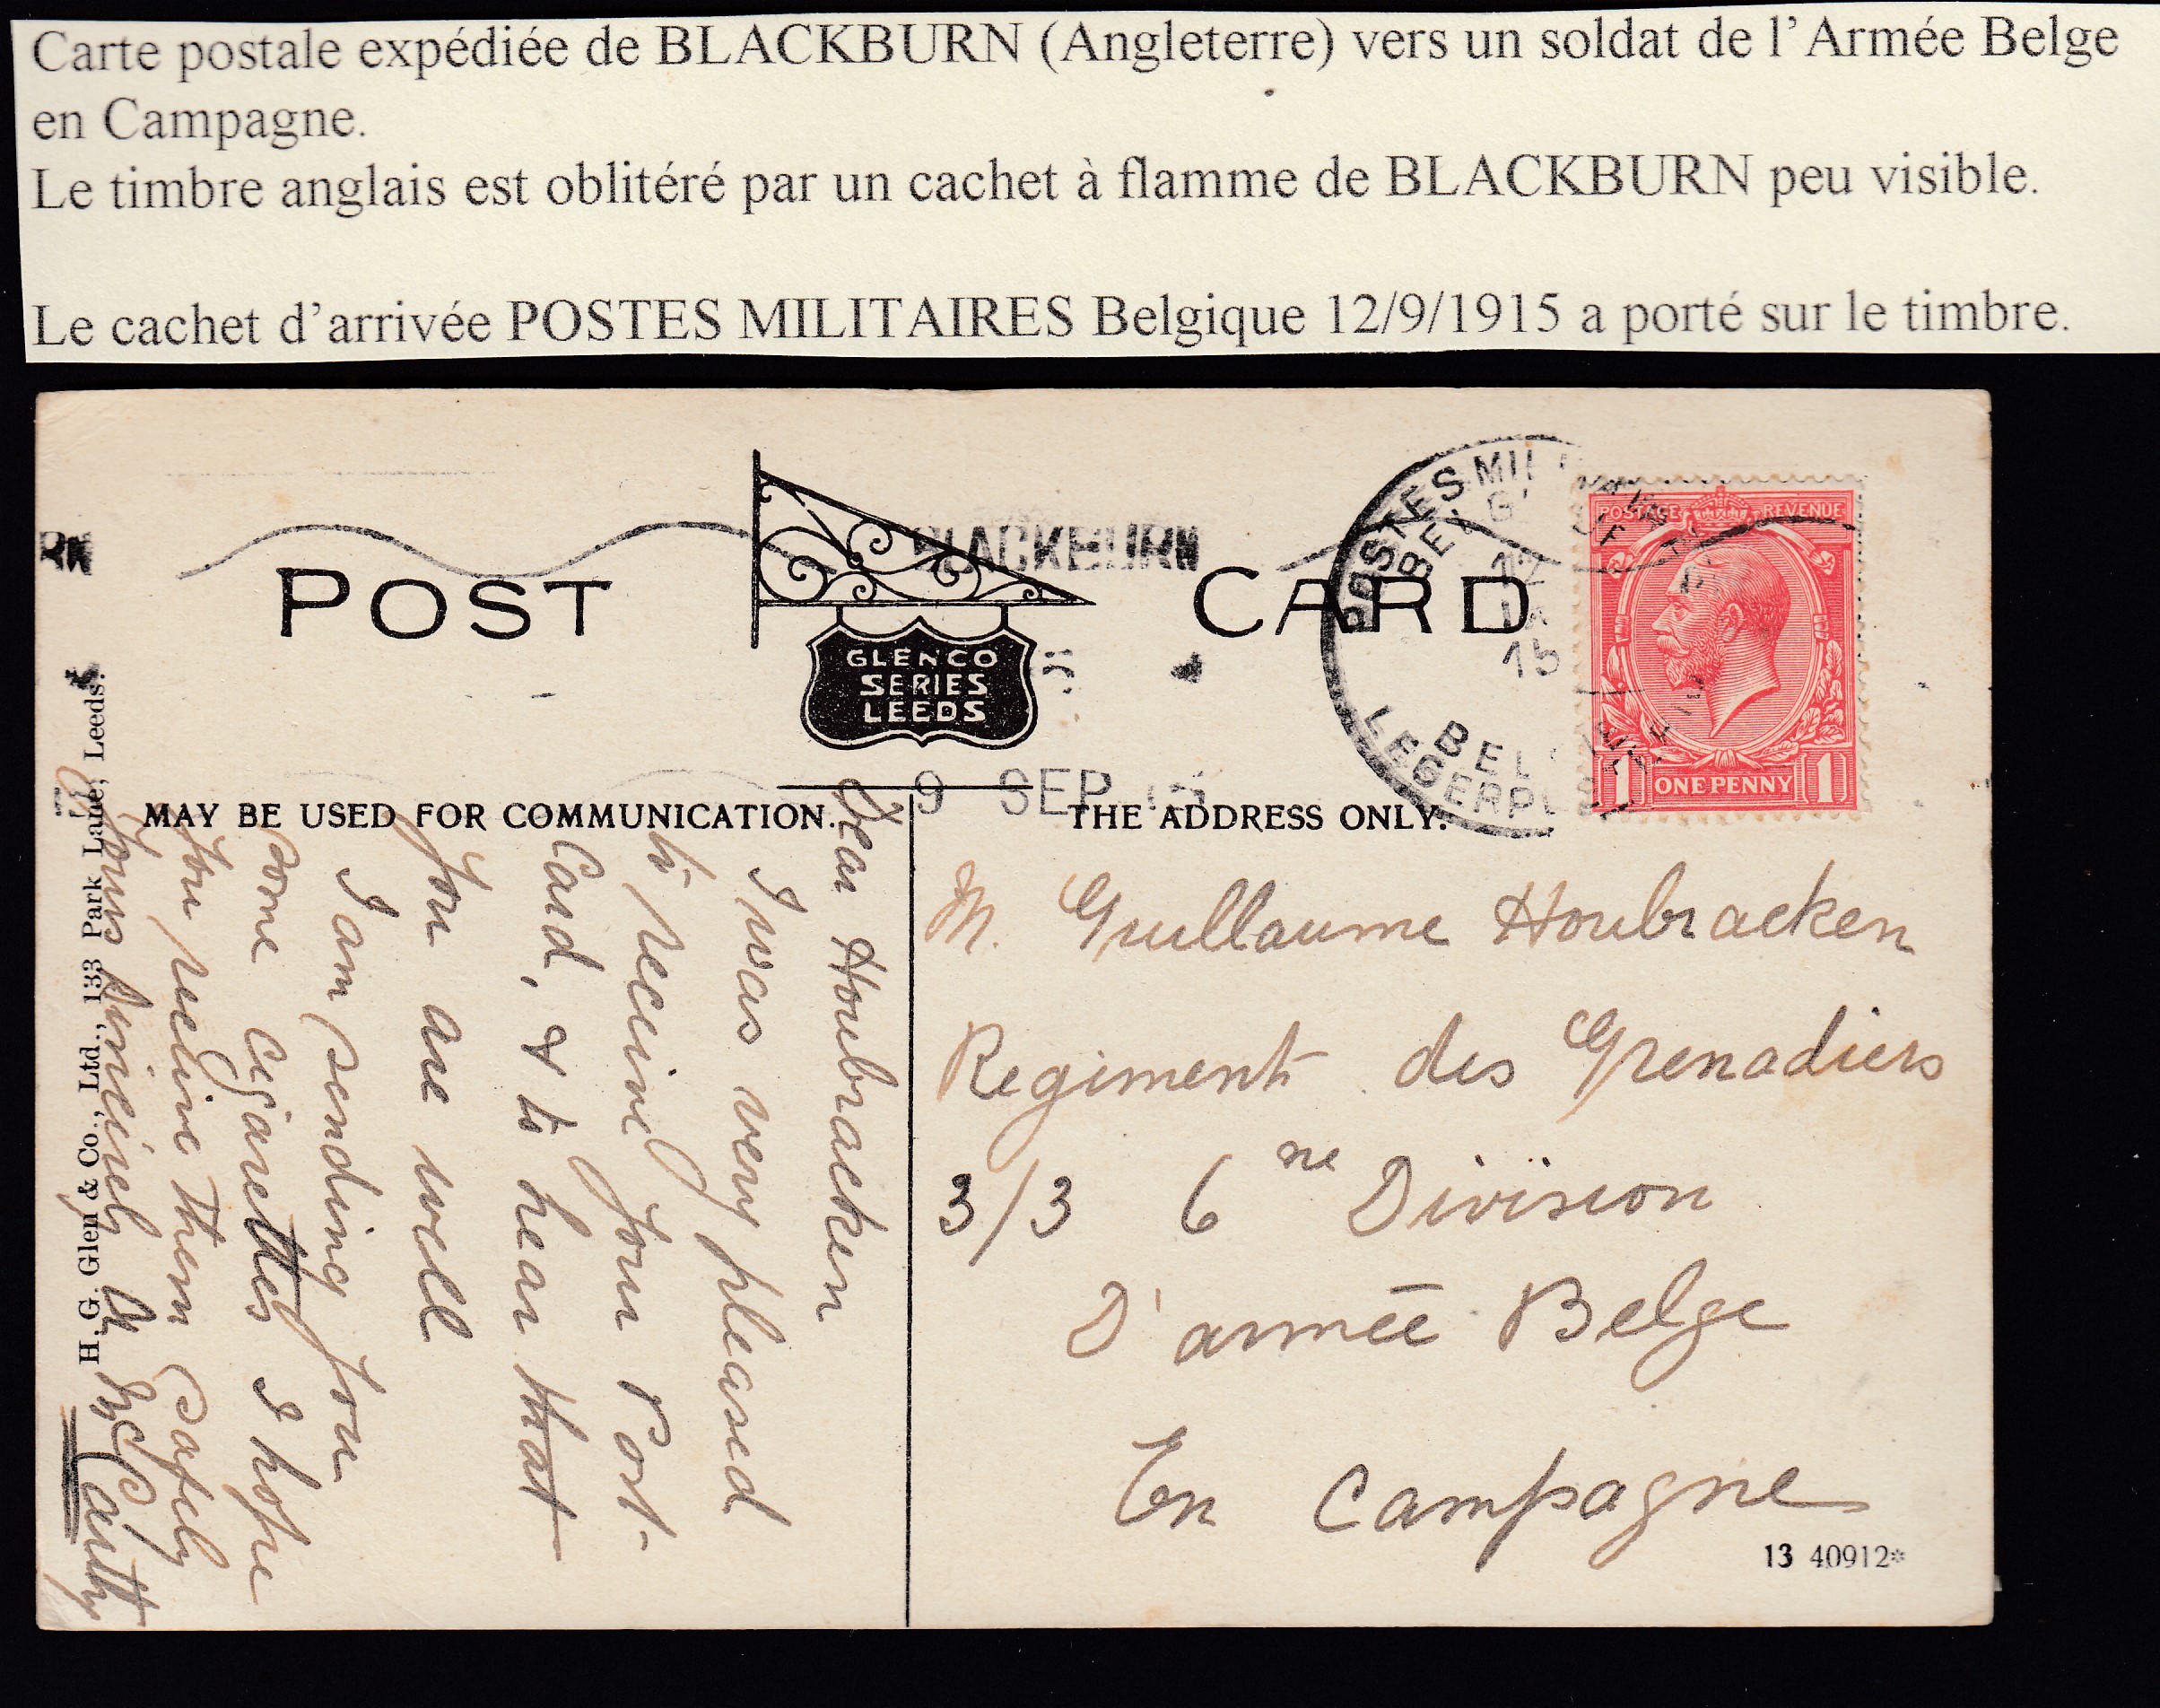 Carte postale expédiée de BLACKBURN (Angleterre) vers un soldat de l'Armée Belge
en Campagne.
Le timbre anglais est oblitéré par un cachet à flamme de BLACKBURN peu visible.
Le cachet d'arrivée POSTES MILITAIRES Belgique 12/9/1915 a porté sur le timbre.
POST CARD
BLACKBURN
GLENCO
SERIES
LEEDS
9 SEP 15
POSTES MIL
BELG
15
BELG
LEGERPOS
POSTAGE REVENUE
1 ONE PENNY 1
MAY BE USED FOR COMMUNICATION.
THE ADDRESS ONLY.
Dear Houbracken
I was very pleased
to receive your Post-
Card, & to hear that
you are well
I am sending you
some cigarettes I hope
you receive them safely
Yours sincerely A McCarthy
H. G. Glen & Co., Ltd., 133 Park Lane, Leeds.
M. Guillaume Houbracken
Regiment des Grenadiers
3/3 6 ne Division
D'armée Belge
En Campagne
13 40912*